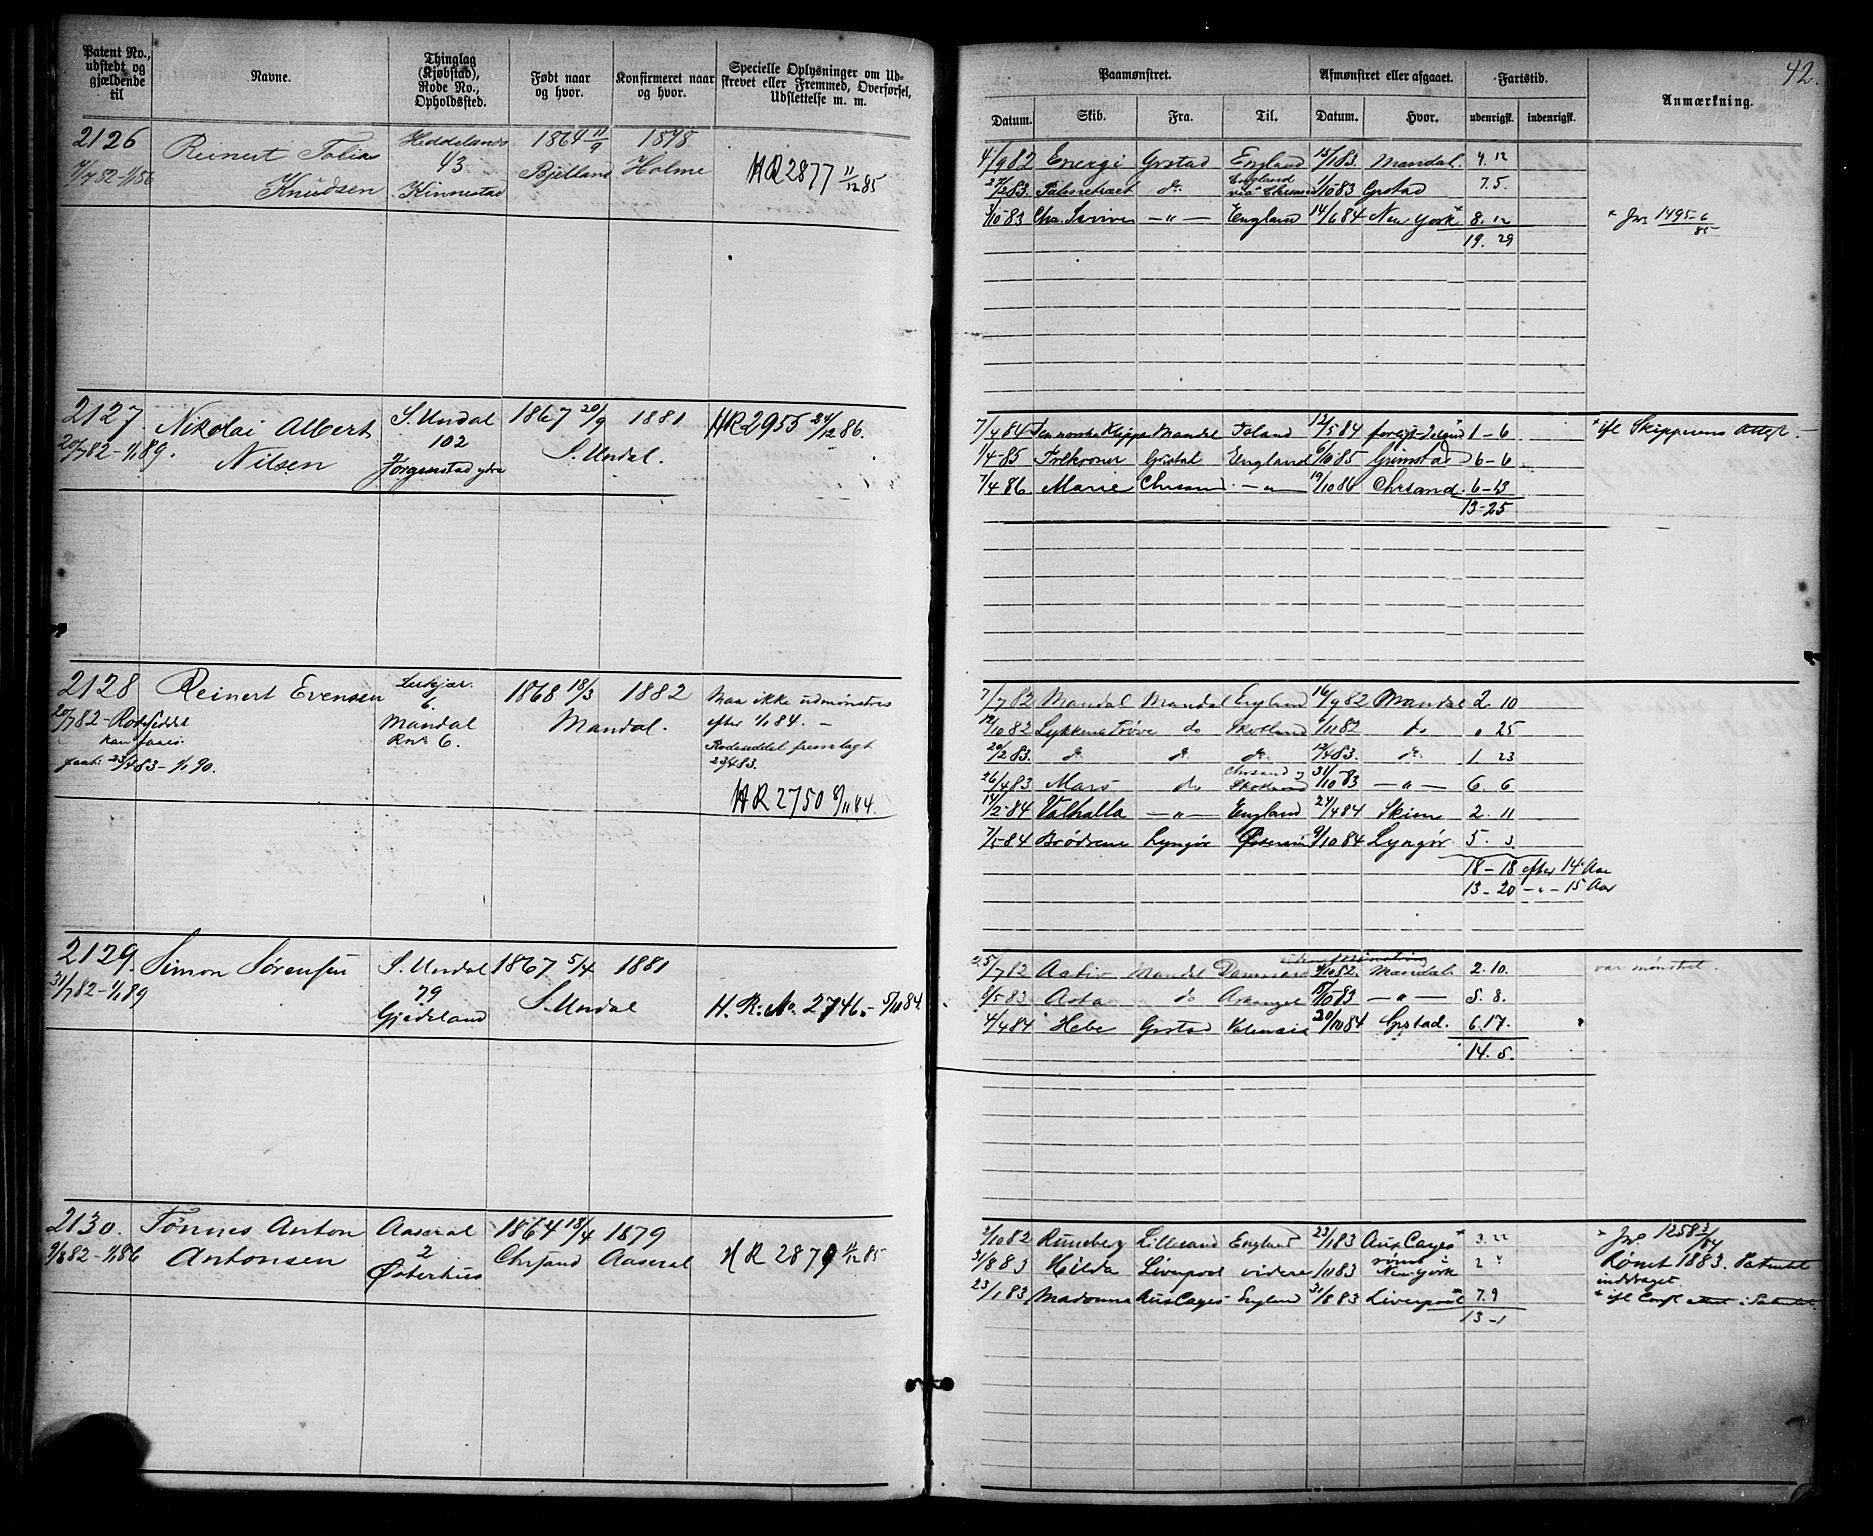 42.
Patent No., udstedt og gjældende til
Navne.
Thinglag (Kjøbstad), Rode No., Opholdssted.
Født naar og hvor.
Konfirmeret naar og hvor.
Specielle Oplysninger om Udskrevet eller Fremmed, Overførsel, Udslettelse m. m.
Paamønstret.
Afmønstret eller afgaaet.
Fartstid.
Anmærkning.
Datum. Skib. Fra. Til. Datum. Hvor. udenrigsk. indenrigsk.
2126 Reinert Tobias Heddelands 1864 11/9 1878
7/7 82-1/1 86 Knudsen 43 Bjelland Holme HR 2877 11/12 85
Kinnestad
4/9 82 Energi Grstad England 15/1 83 Mandal. 4. 12
2/2 83. do England via 1/10 83 Grstad 7. 5.
3/10 83 — " — England 14/6 84 New York * 8. 12 * Jnr 1495-6/85
19. 29
2127. Nikolai Albert S. Undal 1867 20/9 1881 HR 2955 24/12 86.
20/7 82-1/1 89. Nilsen 102 S. Undal.
Jørgenstad ydre
7/4 84 Den norske Klippe Mandal Island 12/5 84 1-6 * ifl Skipperens Attest. -
1/4-85 Trekroner Grstad England 6/10 85 Grimstad 6-6
7/4 86 Marie Chrssand — " — 19/10 86 Chrsand. 6-13
13-25
2128 Reinert Evensen 1868 18/3 1882 Maa ikke udmønstres
20/7 82- 6. Mandal. efter 1/1 84. -
Mandal
Rn. 6. 23/4 83.
23/4 83-1/1 90.
HR 2750 8/11 84.
7/7 82 Mandal Mandal England 16/9 82 Mandal 2. 10
19/10 82 Lykkens Prøve do Skotland 1/11 82 do " 25
20/2 83. do do do 12/4 83. do 1 23
26/4 83 Mars do Chrsand & Skotland 31/10 83 — " — 6. 6
14/2-84 Valhalla — " — England 24/4 84 Skien 2. 11
7/5-84 Brødrene Lyngør 9/10 84 Lyngør 5. 3
18-18 efter 14 Aar
13-20 — " — 15 Aar
2129. Simon Sørensen S. Undal 1867. 5/4 1881
31/7 82-1/1 89 79 S. Undal H. R. No. 2746.- 5/11 84.
Gjedeland
25/7 82 Activ Mandal 9/10 82. Mandal. 2. 10. var mønstret.
1/5 83 Asta do 15/10 83 — " — 5. 8.
4/4 84 Hebe Grstad Valensia 20/10 84 Grstad. 6. 17.
14. 5.
2130. Tønnes Anton Aaseral 1864 18/4 1879
9/8 82-1/1 86 Antonsen 2 Chrsand Aaseral HR 2879 11/12 85
Østerhus
2/10 82 Runeberg Lillesand England 23/1 83 Aux Cayes * 3. 22 * Jnr 1258 3/84
31/8 83 Hilda Liverpool videre 1/11 83 rømt i New York 2 " Rømt 1883. Patentet
inddraget.
23/1 83 Madonna Aux Cayes England 31/8 83 Liverpool * 7. 9 * ifl Patentet.
13-1